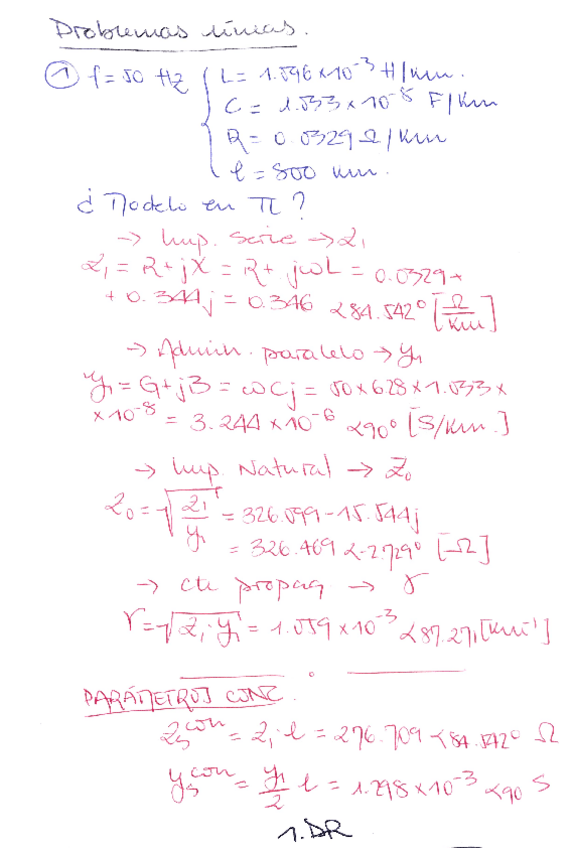 Problemas líneas.
① f=50 Hz { L= 1.096×10⁻³ H/km.
C = 1.033×10⁻⁸ F/km
R = 0.0329 Ω/km
l = 800 km.
¿Modelo en π?
→ Imp. serie → Z₁
Z₁ = R+jX = R+ jωL = 0.0329+
+ 0.344j = 0.346 ∠84.542° [Ω/km]
→ Admin. paralelo → y₁
y₁ = G+jB = ωCj = 50×6.28×1.033×
×10⁻⁸ = 3.244×10⁻⁶ ∠90° [S/km.]
→ Imp Natural → Z₀
Z₀ = √(Z₁/y₁) = 326.099-15.544j
= 326.469 ∠-2.729° [Ω]
→ cte propag → γ
γ=√(Z₁·y₁) = 1.059×10⁻³ ∠87.271 [km⁻¹]
PARÁMETROS CONC.
Zₛᶜᵒⁿ = Z₁·l = 276.709 ∠84.542° Ω
yₛᶜᵒⁿ = y₁/2 l = 1.298×10⁻³ ∠90 S
1.DR